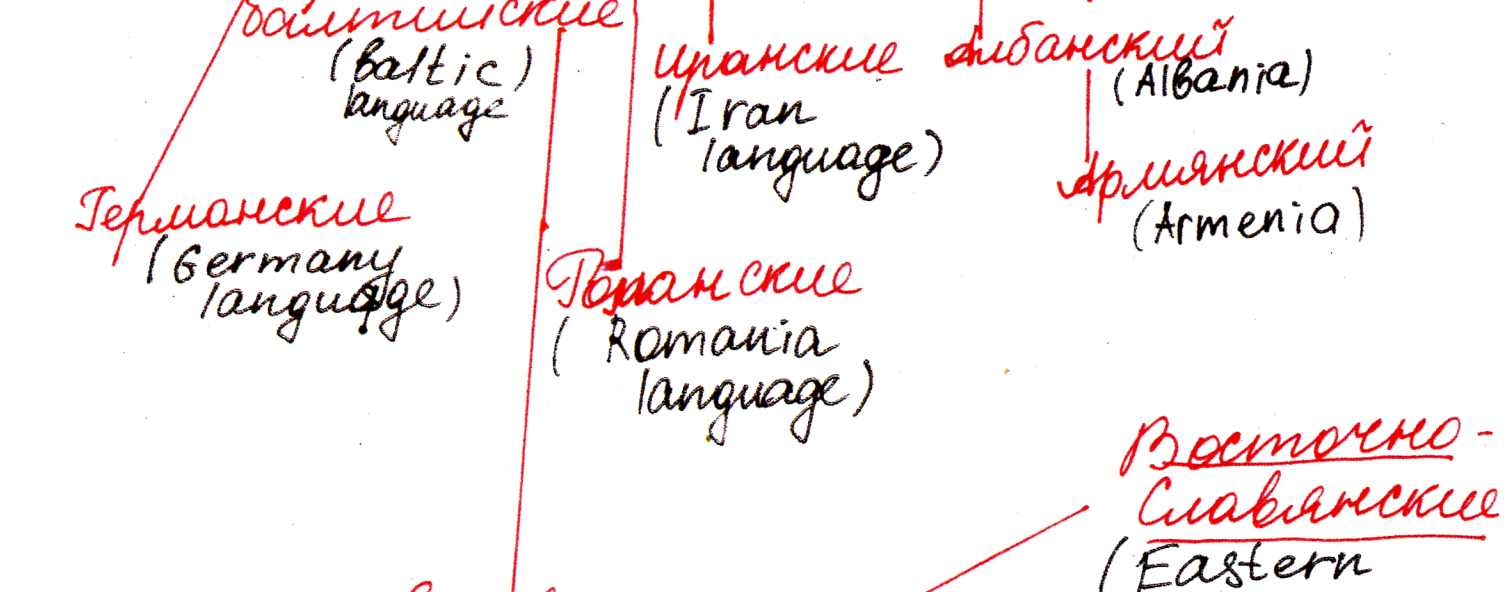 балтийские
(Baltic)
language
Иранские
(Iran
language)
Албанский
(Albania)
Армянский
(Armenia)
Германские
(Germany
language)
Романские
(Romania
language)
Восточно-
Славянские
(Eastern